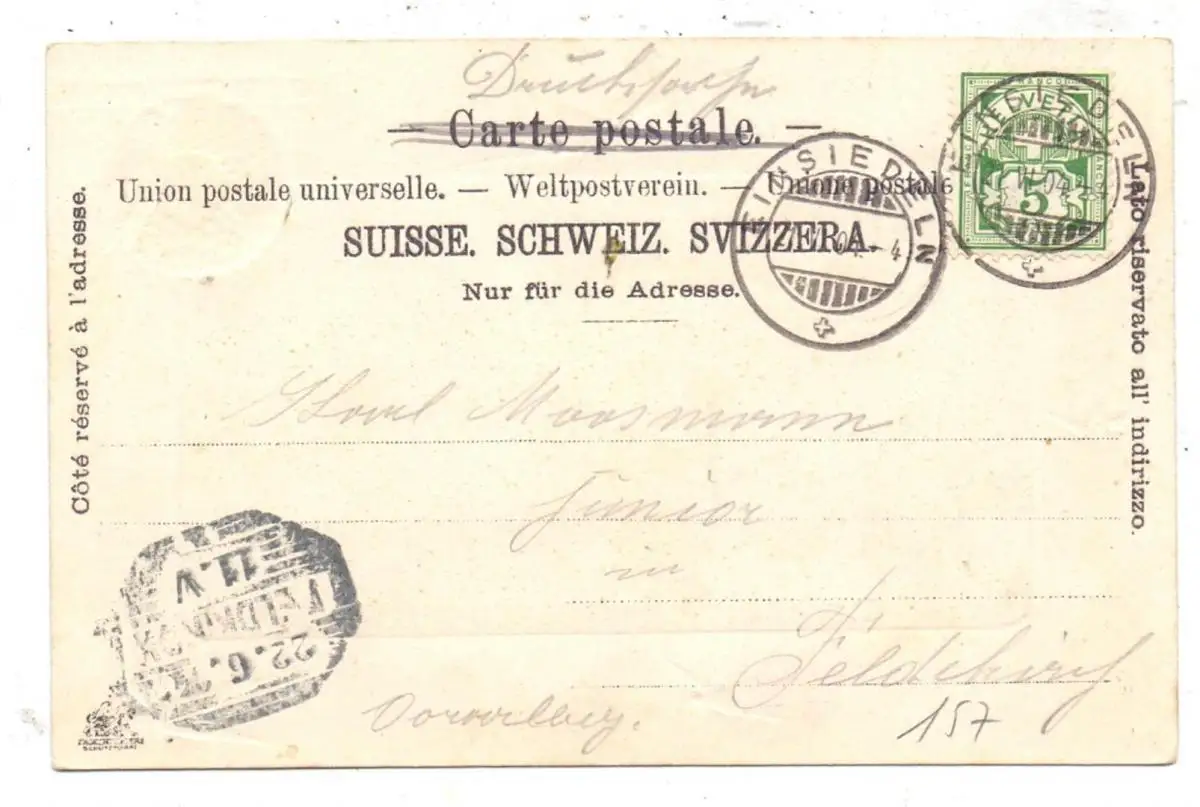 Drucksache
— Carte postale. —
Union postale universelle. — Weltpostverein. — Unione postale
SUISSE. SCHWEIZ. SVIZZERA.
Nur für die Adresse.
Côté réservé à l'adresse.
Lato riservato all' indirizzo.
FRANCO
HELVETIA
5
EINSIEDELN
04.- 4
EINSIEDELN
04.- 4
Moosmann
Junior
in
Feldkirch
Vorarlberg.
157
22.6.
FELDKIRCH
11.V
SCHUTZMARKE